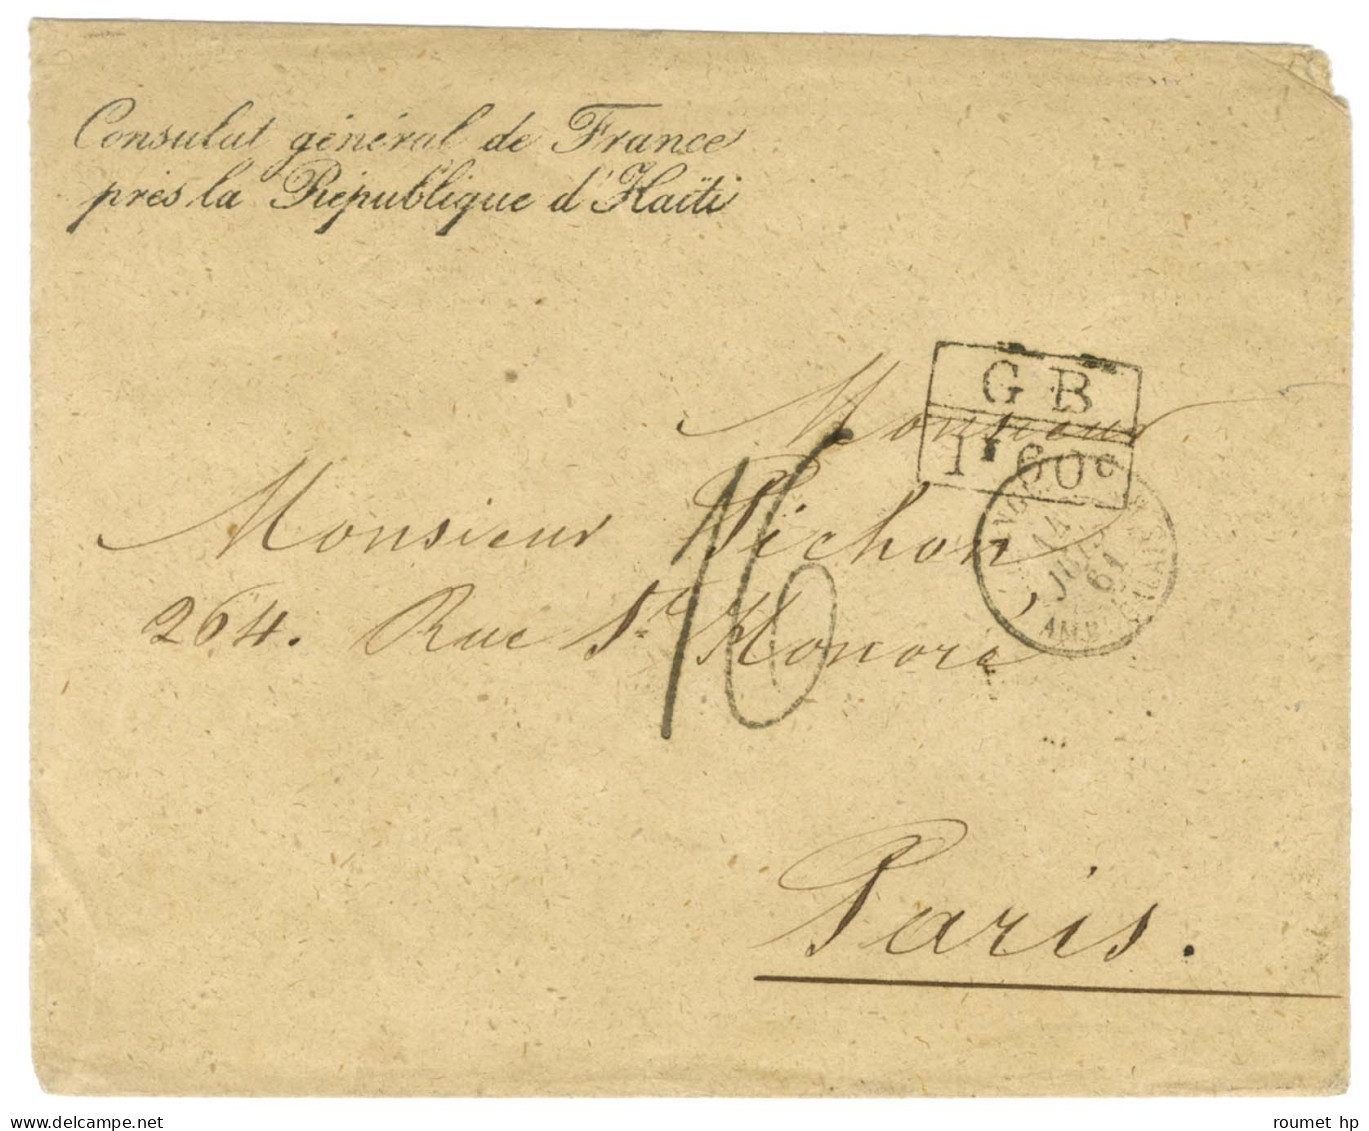 Consulat général de France
près la République d'Haïti
G B
1f 60c
Monsieur
Monsieur Pichon,
264. Rue St. Honoré
16
14
JUIL
61
AMB. CALAIS
Paris.
roumet hp